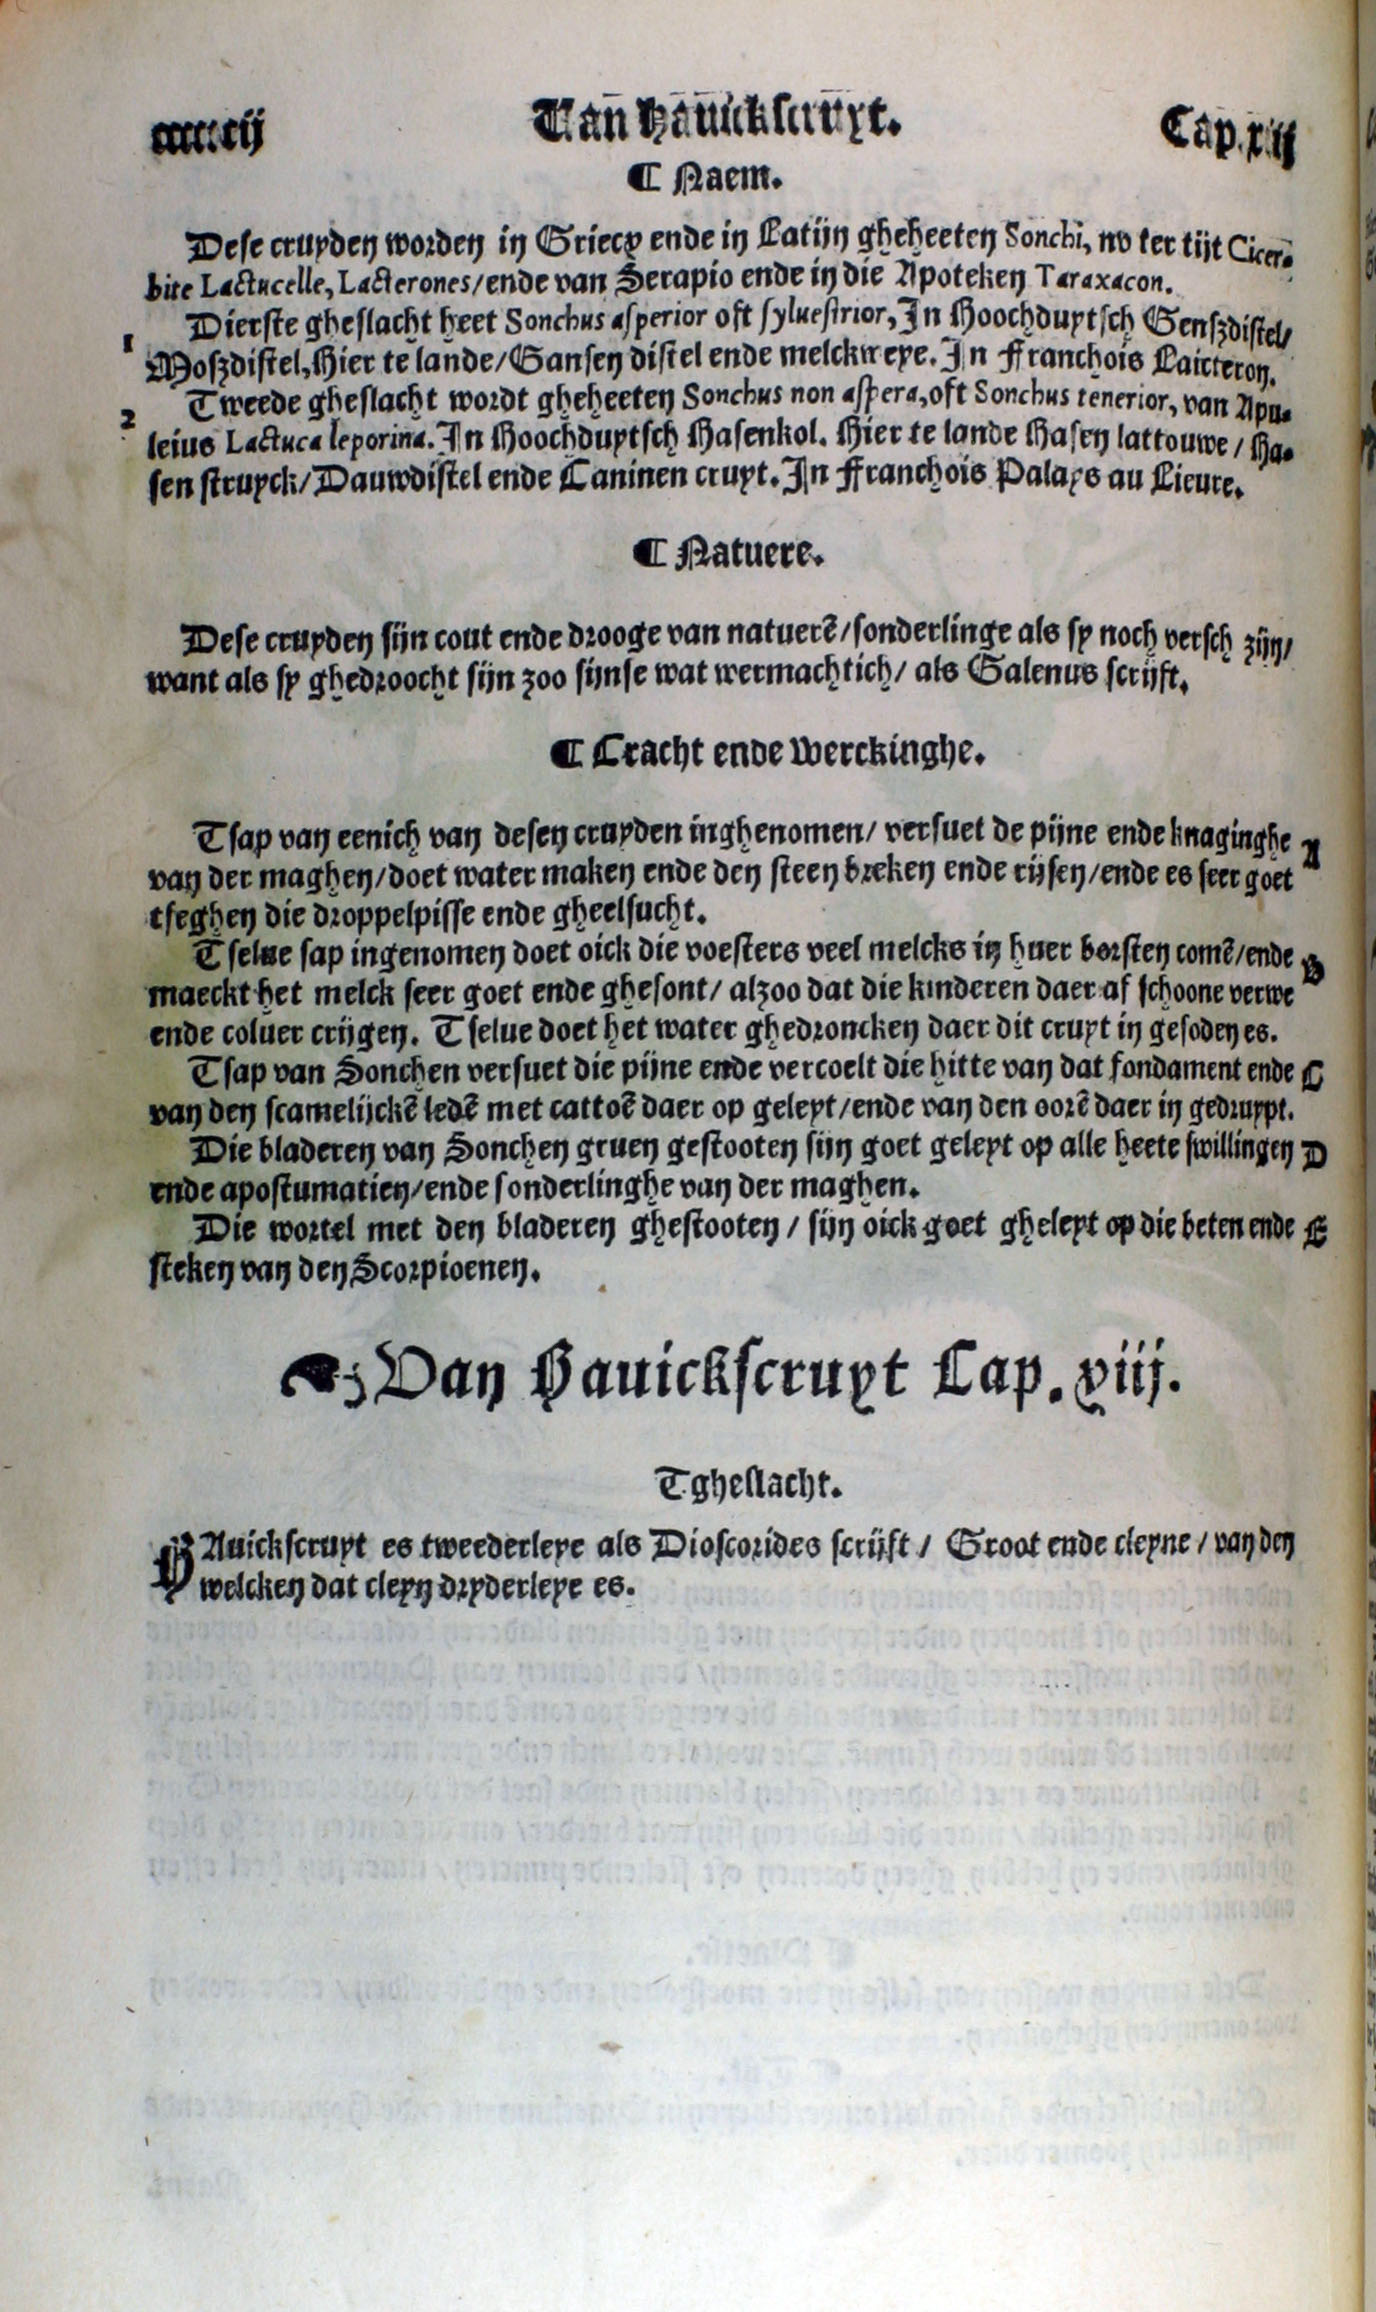 Van Hauickscruyt. Cap. xiij
¶ Naem.
Dese cruyden worden in Griecx ende in Latijn gheheeten Sonchi, no ter tijt Cicer-
bite Lactucelle, Lacterones/ende van Serapio ende in die Apoteken Taraxacon.
1 Dierste gheslacht heet Sonchus asperior oft syluestrior, In Hoochduytsch Genszdistel/
Moszdistel, Hier te lande/Gansen distel ende melckweye. In Franchois Laicteron.
2 Tweede gheslacht wordt gheheeten Sonchus non aspera, oft Sonchus tenerior, van Apu-
leius Lactuca leporina. In Hoochduytsch Hasenkol. Hier te lande Hasen lattouwe/ Ha-
sen struyck/Dauwdistel ende Caninen cruyt. In Franchois Palays au Lieure.
¶ Natuere.
Dese cruyden sijn cout ende drooge van natuerē/sonderlinge als sy noch versch zijn/
want als sy ghedroocht sijn zoo sijnse wat wermachtich/ als Galenus scrijft.
¶ Cracht ende Werckinghe.
Tsap van eenich van desen cruyden inghenomen/ versuet de pijne ende knaginghe A
van der maghen/doet water maken ende den steen breken ende rijsen/ende es seer goet
tseghen die droppelpisse ende gheelsucht.
Tselue sap ingenomen doet oick die voesters veel melcks in huer borsten comē/ende B
maeckt het melck seer goet ende ghesont/ alzoo dat die kinderen daer af schoone verwe
ende coluer crijgen. Tselue doet het water ghedroncken daer dit cruyt in gesoden es.
Tsap van Sonchen versuet die pijne ende vercoelt die hitte van dat fondament ende C
van den scamelijckē ledē met cattoē daer op geleyt/ende van den oorē daer in gedruypt.
Die bladeren van Sonchen gruen gestooten sijn goet geleyt op alle heete swillingen D
ende apostumatien/ende sonderlinghe van der maghen.
Die wortel met den bladeren ghestooten/ sijn oick goet gheleyt op die beten ende E
steken van den Scorpioenen.
Van Hauickscruyt Cap. xiij.
Tgheslacht.
HAuickscruyt es tweederleye als Dioscorides scrijft/ Groot ende cleyne/ van den
welcken dat cleyn dryderleye es.